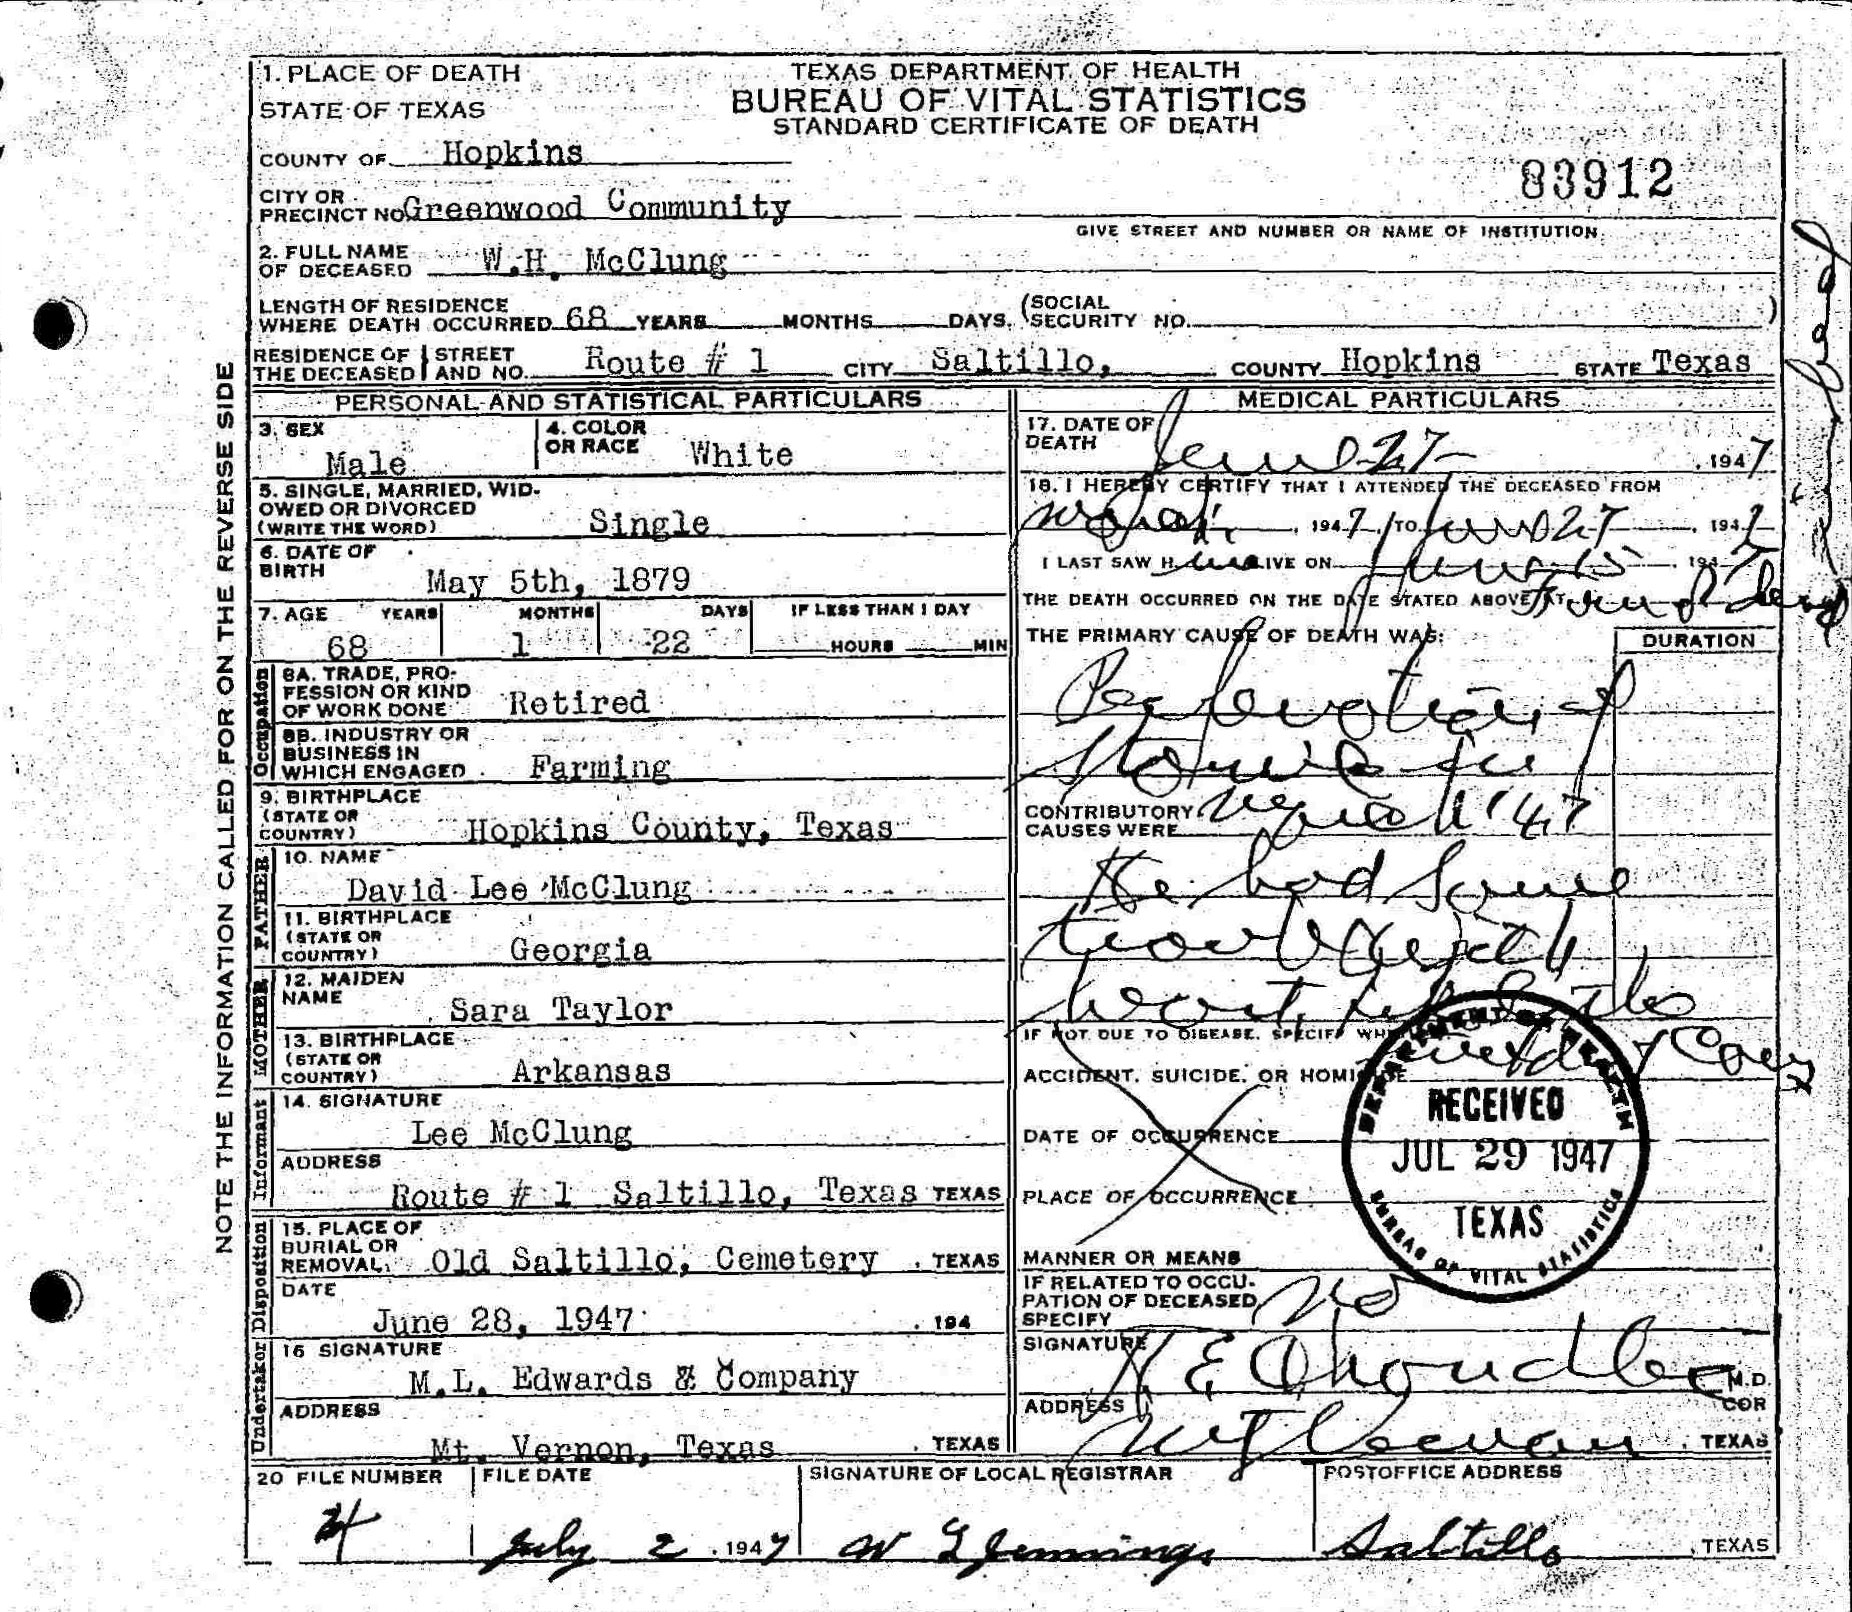 1. PLACE OF DEATH
STATE OF TEXAS
TEXAS DEPARTMENT OF HEALTH
BUREAU OF VITAL STATISTICS
STANDARD CERTIFICATE OF DEATH
COUNTY OF Hopkins
83912
CITY OR
PRECINCT NO. Greenwood Community
GIVE STREET AND NUMBER OR NAME OF INSTITUTION
2. FULL NAME
OF DECEASED W.H. McClung
LENGTH OF RESIDENCE
WHERE DEATH OCCURRED 68 YEARS MONTHS DAYS. (SOCIAL SECURITY NO. )
RESIDENCE OF THE DECEASED STREET AND NO. Route # 1 CITY Saltillo, COUNTY Hopkins STATE Texas
NOTE THE INFORMATION CALLED FOR ON THE REVERSE SIDE
PERSONAL AND STATISTICAL PARTICULARS
3. SEX
Male
4. COLOR
OR RACE White
5. SINGLE, MARRIED, WID-
OWED OR DIVORCED
(WRITE THE WORD) Single
6. DATE OF
BIRTH May 5th, 1879
7. AGE YEARS MONTHS DAYS IF LESS THAN 1 DAY
68 1 22 HOURS MIN
Occupation
8A. TRADE, PRO-
FESSION OR KIND
OF WORK DONE Retired
8B. INDUSTRY OR
BUSINESS IN
WHICH ENGAGED Farming
9. BIRTHPLACE
(STATE OR
COUNTRY) Hopkins County, Texas
FATHER
10. NAME
David Lee McClung
11. BIRTHPLACE
(STATE OR
COUNTRY) Georgia
MOTHER
12. MAIDEN
NAME Sara Taylor
13. BIRTHPLACE
(STATE OR
COUNTRY) Arkansas
Informant
14. SIGNATURE
Lee McClung
ADDRESS
Route # 1 Saltillo, Texas TEXAS
Disposition
15. PLACE OF
BURIAL OR
REMOVAL, Old Saltillo, Cemetery , TEXAS
DATE
June 28, 1947 , 194
Undertaker
16 SIGNATURE
M.L. Edwards & Company
ADDRESS
Mt. Vernon, Texas , TEXAS
MEDICAL PARTICULARS
17. DATE OF
DEATH June 27 , 1947
18. I HEREBY CERTIFY THAT I ATTENDED THE DECEASED FROM
, 1947, TO June 27 , 1947
I LAST SAW H im ALIVE ON June 15 , 1947
THE DEATH OCCURRED ON THE DATE STATED ABOVE AT
THE PRIMARY CAUSE OF DEATH WAS:
DURATION
Perforation of
CONTRIBUTORY
CAUSES WERE '47
He had some
trouble with
IF NOT DUE TO DISEASE, SPECIFY WHETHER
ACCIDENT, SUICIDE, OR HOMICIDE
DATE OF OCCURRENCE
PLACE OF OCCURRENCE
MANNER OR MEANS
DEPARTMENT OF HEALTH
RECEIVED
JUL 29 1947
TEXAS
BUREAU OF VITAL STATISTICS
IF RELATED TO OCCU-
PATION OF DECEASED
SPECIFY No
SIGNATURE M.D.
COR
ADDRESS Mt Vernon , TEXAS
20 FILE NUMBER FILE DATE SIGNATURE OF LOCAL REGISTRAR POSTOFFICE ADDRESS
July 2 , 1947 W L Jennings Saltillo , TEXAS